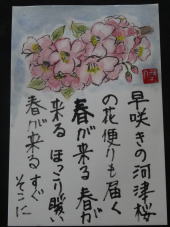 早咲きの河津桜
の花便りも届く
春が来る 春が
来る ほっこり暖い
春が来る すぐ
そこに